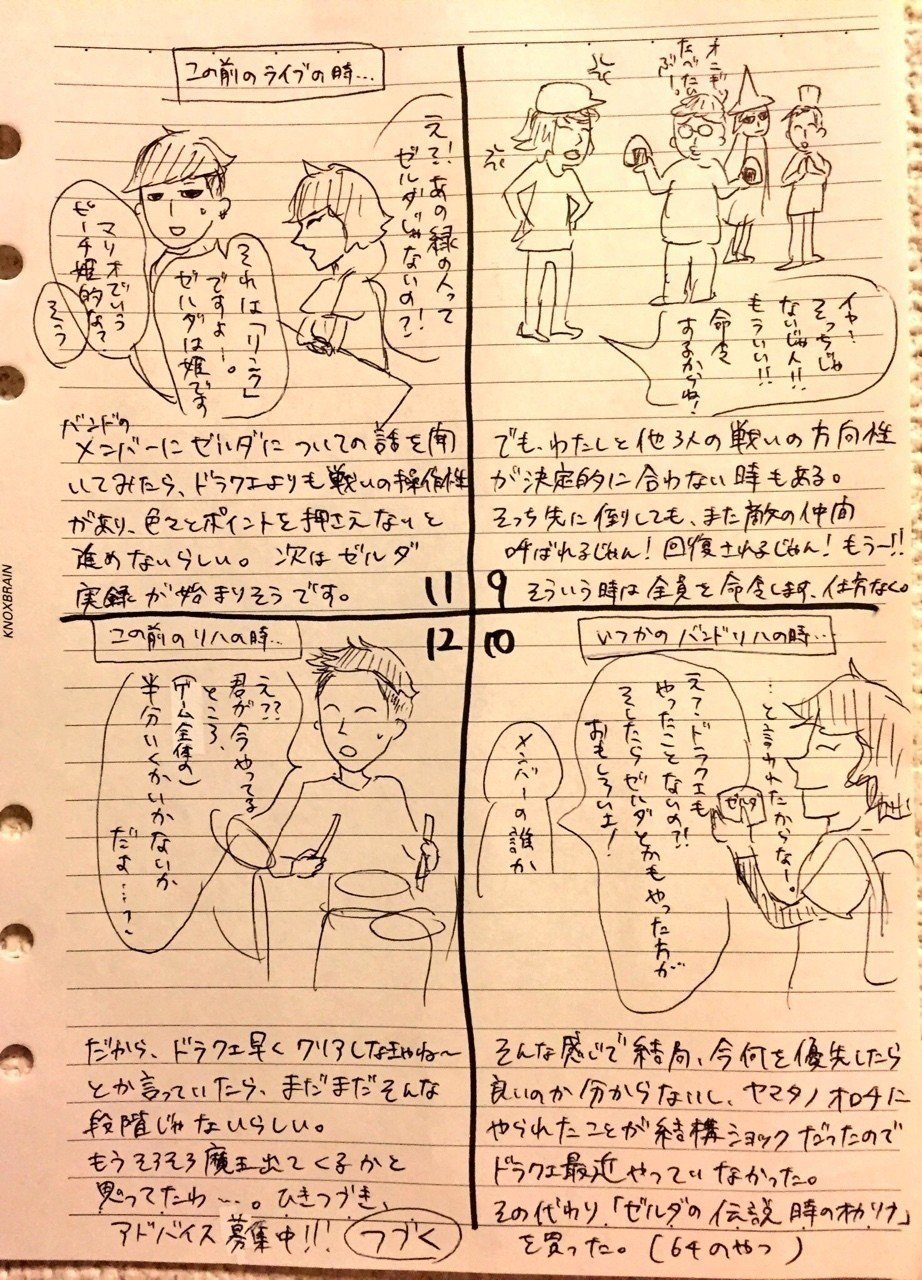 オニギリ
たべたい
ぶー。
イヤ!
そっちじゃ
ないじゃん!!
もういい!!
命令
するからね!
でも、わたしと他3人の戦いの方向性
が決定的に合わない時もある。
そっち先に倒しても、また敵の仲間
呼ばれるじゃん!回復されるじゃん!もうー!!
そういう時は全員を命令します、仕方なく。
9
10
いつかのバンドリハの時…
えー?ドラクエも
やったことないの?!
そしたらゼルダとかもやった方が
おもしろいよ!
メンバーの誰か
…と言われたからなー。
ゼルダ
そんな感じで結局、今何を優先したら
良いのか分からないし、ヤマタノオロチに
やられたことが結構ショックだったので
ドラクエ最近やっていなかった。
その代わり「ゼルダの伝説 時のオカリナ」
を買った。(64のやつ)
この前のライブの時…
え?!あの緑の人って
ゼルダじゃないの?!
それは「リンク」
ですよー。
ゼルダは姫です
マリオでいう
ピーチ姫的な?
そう
バンドの
メンバーにゼルダについての話を聞
いてみたら、ドラクエよりも戦いの操作性
があり、色々とポイントを押さえないと
進めないらしい。次はゼルダ
実録が始まりそうです。
11
12
この前のリハの時…
え??
君が今やってる
ところ、
(ゲーム全体の)
半分いくかいかないか
だよ…?
だから、ドラクエ早くクリアしなきゃね〜
とか言っていたら、まだまだそんな
段階じゃないらしい。
もうそろそろ魔王出てくるかと
思ってたわ…。ひきつづき、
アドバイス募集中!!!
つづく
KNOXBRAIN